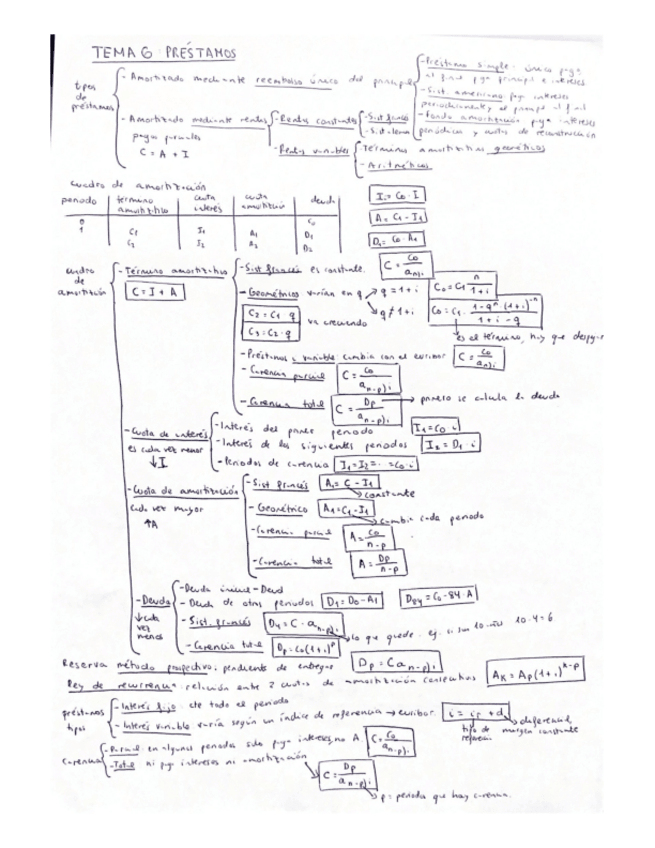 TEMA 6: PRÉSTAMOS
tipos de préstamos
- Amortizado mediante reembolso único del principal
- Préstamo simple: único pago al final pga principal e intereses
- Sist. americano: paga intereses periódicamente y el principal al final
- Fondo amortización: paga intereses periódicos y cuotas de reconstrucción
- Amortizado mediante rentas
pagos parciales
C = A + I
- Rentas constantes
- Sist francés
- Sistema
- Rentas variables
- Términos amortizativos geométricos
- Aritméticos
cuadro de amortización
periodo | término amortizativo | cuota interés | cuota amortizació | deuda
0 C0
1 C1 I1 A1 D1
C2 I2 A2 D2
I1 = C0 · I
A = C1 - I1
D1 = C0 - A1
cuadro de amortización
- Término amortizativo
C = I + A
- Sist francés es constante.
C = C0 / an⌉i
- Geométricos varían en q
q = 1 + i
C0 = C1 n / 1 + i
q ≠ 1 + i
C0 = C1 · 1 - q^n (1+i)^-n / 1 + i - q
C2 = C1 · q
C3 = C2 · q
va creciendo
es el término, hay que despejar
- Préstamos i variable cambia con el euribor
C = C0 / an⌉i
- Carencia parcial
C = C0 / an-p⌉i
- Carencia total
C = Dp / an-p⌉i
→ primero se calcula la deuda
- Cuota de interés
es cada vez menor
↓I
- Interés del primer periodo
I1 = C0 · i
- Interés de los siguientes periodos
I2 = D1 · i
- Periodos de carencia
I1 = I2 = ... = C0 · i
- Cuota de amortización
cada vez mayor
↑A
- Sist francés
A1 = C - I1
→ constante
- Geométrico
A1 = C1 - I1
→ cambia cada periodo
- Carencia parcial
A = C0 / n-p
- Carencia total
A = Dp / n-p
- Deuda
↓ cada vez menos
- Deuda inicial
- Deuda de otros periodos
D1 = D0 - A1
D84 = C0 - 84 · A
- Sist. francés
D4 = C · an-p⌉i
→ lo que quede. ej. si son 10 años 10-4=6
- Carencia total
Dp = C0(1+i)^p
Reserva método prospectivo: pendiente de entregar
Dp = C an-p⌉i
Ley de recurrencia: relación entre 2 cuotas de amortización consecutivas
AK = Ap(1+i)^k-p
préstamos tipos
- Interés fijo: cte todo el periodo
- Interés variable varía según un índice de referencia → euribor.
i = ir + d
→ diferencial, margen constante
tipo de referencia
Carencia
- Parcial: en algunos periodos solo paga intereses, no A
C = C0 / an-p⌉i
- Total ni paga intereses ni amortización
C = Dp / an-p⌉i
→ p = periodos que hay carencia.